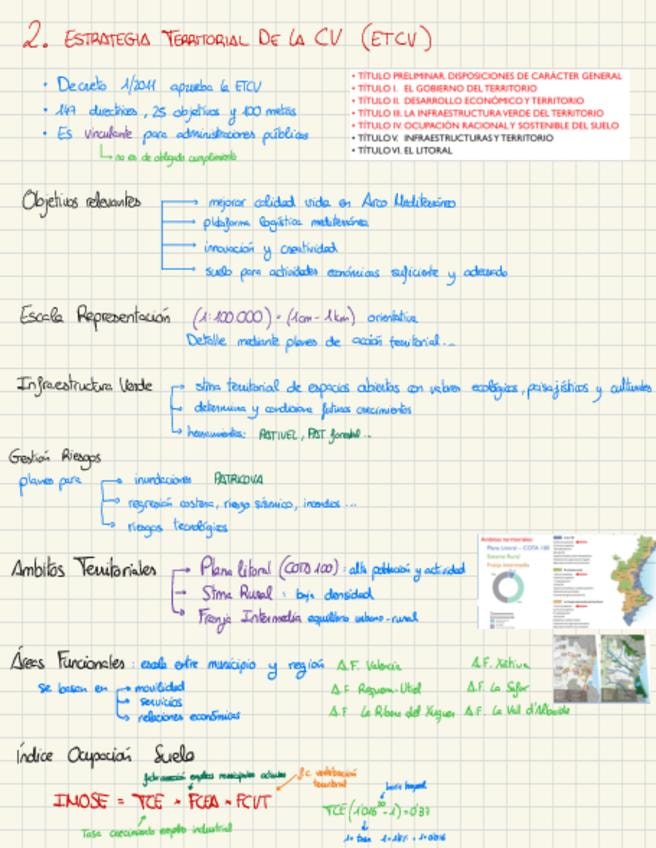 2. ESTRATEGIA TERRITORIAL DE LA CV (ETCV)
• Decreto 1/2011 aprueba la ETCV
• 147 directrices, 25 objetivos y 100 metas
• Es vinculante para administraciones públicas
no es de obligado cumplimiento
• TÍTULO PRELIMINAR. DISPOSICIONES DE CARÁCTER GENERAL
• TÍTULO I. EL GOBIERNO DEL TERRITORIO
• TÍTULO II. DESARROLLO ECONÓMICO Y TERRITORIO
• TÍTULO III. LA INFRAESTRUCTURA VERDE DEL TERRITORIO
• TÍTULO IV. OCUPACIÓN RACIONAL Y SOSTENIBLE DEL SUELO
• TÍTULO V. INFRAESTRUCTURAS Y TERRITORIO
• TÍTULO VI. EL LITORAL
Objetivos relevantes
mejorar calidad vida en Arco Mediterráneo
plataforma logística mediterránea
innovación y creatividad
suelo para actividades económicas suficiente y adecuado
Escala Representación (1:100.000) = (1cm - 1km) orientativa
Detalle mediante planes de acción territorial...
Infraestructura Verde
stma territorial de espacios abiertos con valores ecológicos, paisajísticos y culturales
determina y condiciona futuros crecimientos
herramientas: PATIVEL, PAT forestal...
Gestión Riesgos
planes para
inundaciones PATRICOVA
regresión costera, riesgo sísmico, incendios ...
riesgos tecnológicos
Ambitos Territoriales
Plana litoral (COTA 100): alta población y actividad
Stma Rural: baja densidad
Franja Intermedia equilibrio urbano-rural
Ámbitos territoriales
Plana Litoral – COTA 100
Sistema Rural
Franja Intermedia
Áreas Funcionales: escala entre municipio y región
se basan en
movilidad
servicios
relaciones económicas
A.F. Valencia
A.F. Requena-Utiel
A.F. La Ribera del Xuquer
A.F. Xàtiva
A.F. La Safor
A.F. La Vall d'Albaida
Índice Ocupación Suelo
f.c. vertebración
territorial
IMOSE = TCE × FCEA × FCVT
Tasa crecimiento empleo industrial